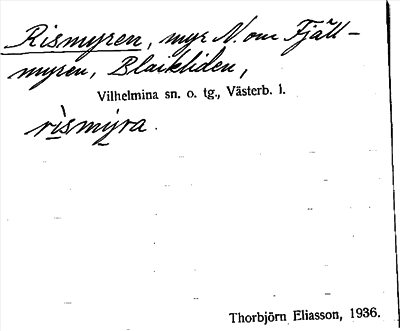 Rismyren, myr N. om Fjäll-
myren, Blaikliden,
Vilhelmina sn. o. tg., Västerb. l.
rismyra.
Thorbjörn Eliasson, 1936.